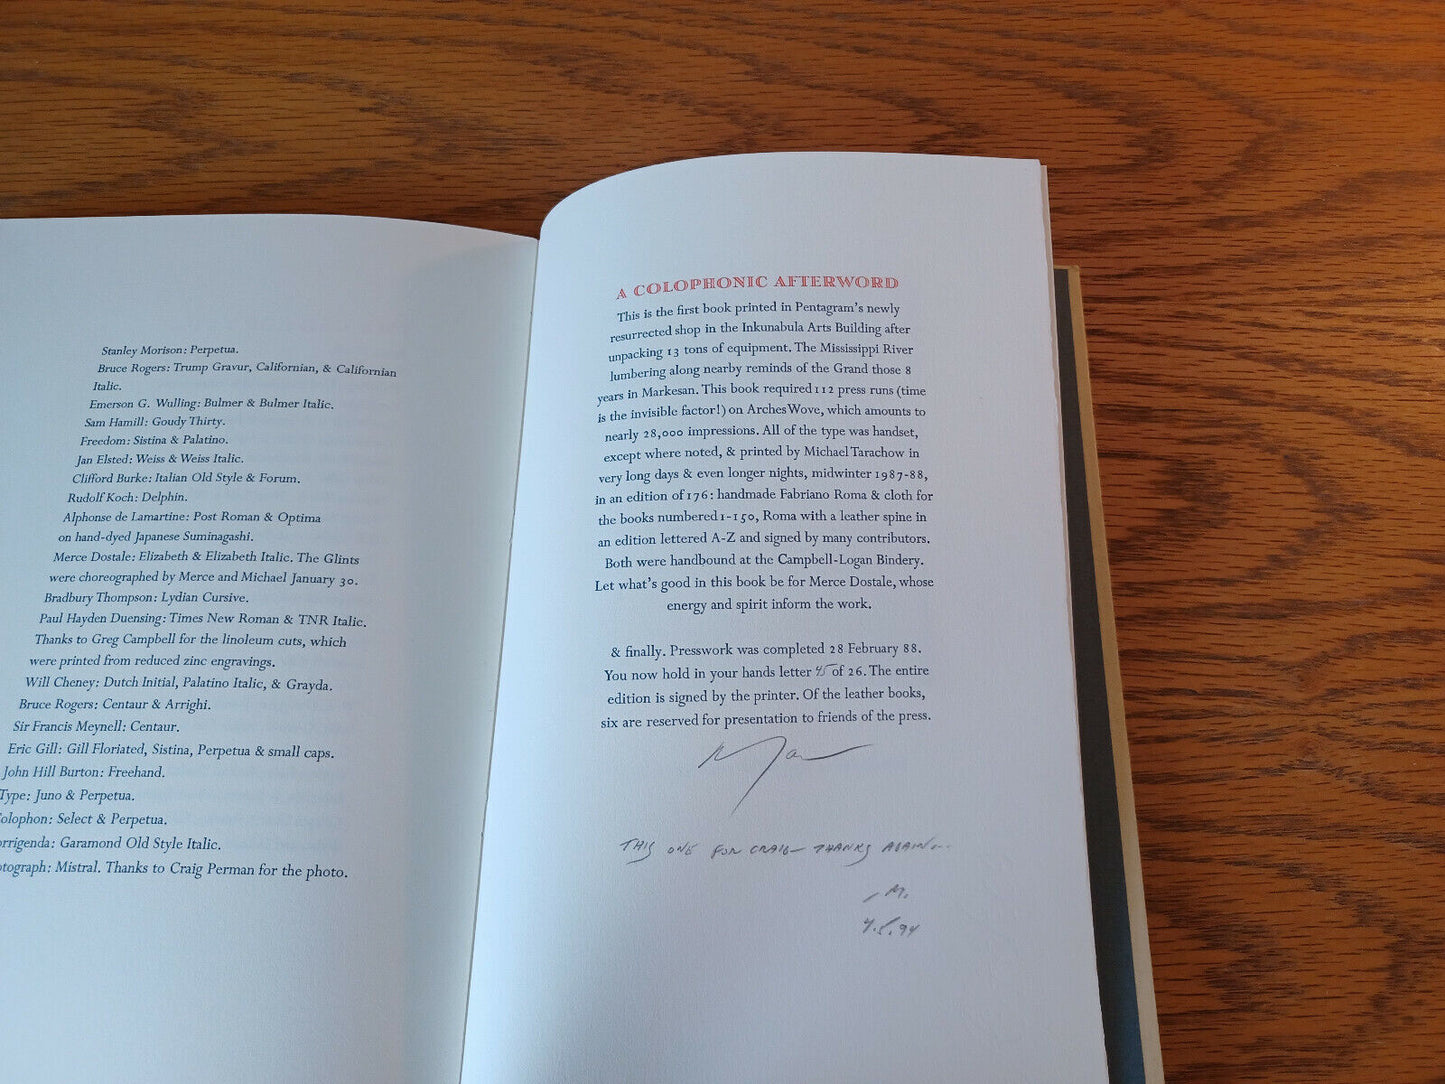 Stanley Morison: Perpetua.
Bruce Rogers: Trump Gravur, Californian, & Californian
Italic.
Emerson G. Wulling: Bulmer & Bulmer Italic.
Sam Hamill: Goudy Thirty.
Freedom: Sistina & Palatino.
Jan Elsted: Weiss & Weiss Italic.
Clifford Burke: Italian Old Style & Forum.
Rudolf Koch: Delphin.
Alphonse de Lamartine: Post Roman & Optima
on hand-dyed Japanese Suminagashi.
Merce Dostale: Elizabeth & Elizabeth Italic. The Glints
were choreographed by Merce and Michael January 30.
Bradbury Thompson: Lydian Cursive.
Paul Hayden Duensing: Times New Roman & TNR Italic.
Thanks to Greg Campbell for the linoleum cuts, which
were printed from reduced zinc engravings.
Will Cheney: Dutch Initial, Palatino Italic, & Grayda.
Bruce Rogers: Centaur & Arrighi.
Sir Francis Meynell: Centaur.
Eric Gill: Gill Floriated, Sistina, Perpetua & small caps.
John Hill Burton: Freehand.
Type: Juno & Perpetua.
olophon: Select & Perpetua.
orrigenda: Garamond Old Style Italic.
otograph: Mistral. Thanks to Craig Perman for the photo.
A COLOPHONIC AFTERWORD
This is the first book printed in Pentagram's newly
resurrected shop in the Inkunabula Arts Building after
unpacking 13 tons of equipment. The Mississippi River
lumbering along nearby reminds of the Grand those 8
years in Markesan. This book required 112 press runs (time
is the invisible factor!) on Arches Wove, which amounts to
nearly 28,000 impressions. All of the type was handset,
except where noted, & printed by Michael Tarachow in
very long days & even longer nights, midwinter 1987-88,
in an edition of 176: handmade Fabriano Roma & cloth for
the books numbered 1-150, Roma with a leather spine in
an edition lettered A-Z and signed by many contributors.
Both were handbound at the Campbell-Logan Bindery.
Let what's good in this book be for Merce Dostale, whose
energy and spirit inform the work.
& finally. Presswork was completed 28 February 88.
You now hold in your hands letter 45 of 26. The entire
edition is signed by the printer. Of the leather books,
six are reserved for presentation to friends of the press.
THIS ONE FOR CRAIG — THANKS AGAIN...
— M.
4.5.94